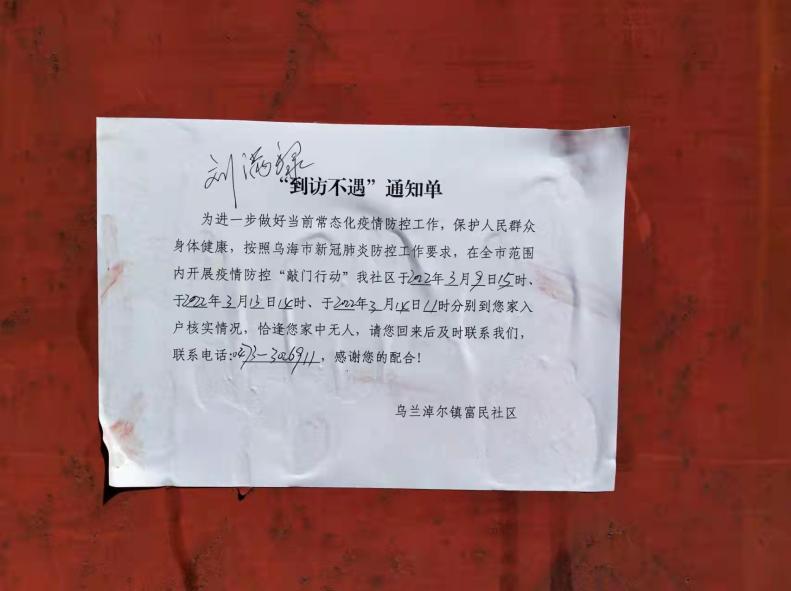 刘满禄
“到访不遇”通知单
为进一步做好当前常态化疫情防控工作，保护人民群众
身体健康，按照乌海市新冠肺炎防控工作要求，在全市范围
内开展疫情防控“敲门行动”我社区于2022年3月9日15时、
于2022年3月13日14时、于2022年3月14日11时分别到您家入
户核实情况，恰逢您家中无人，请您回来后及时联系我们，
联系电话:0473-3026911，感谢您的配合！
乌兰淖尔镇富民社区